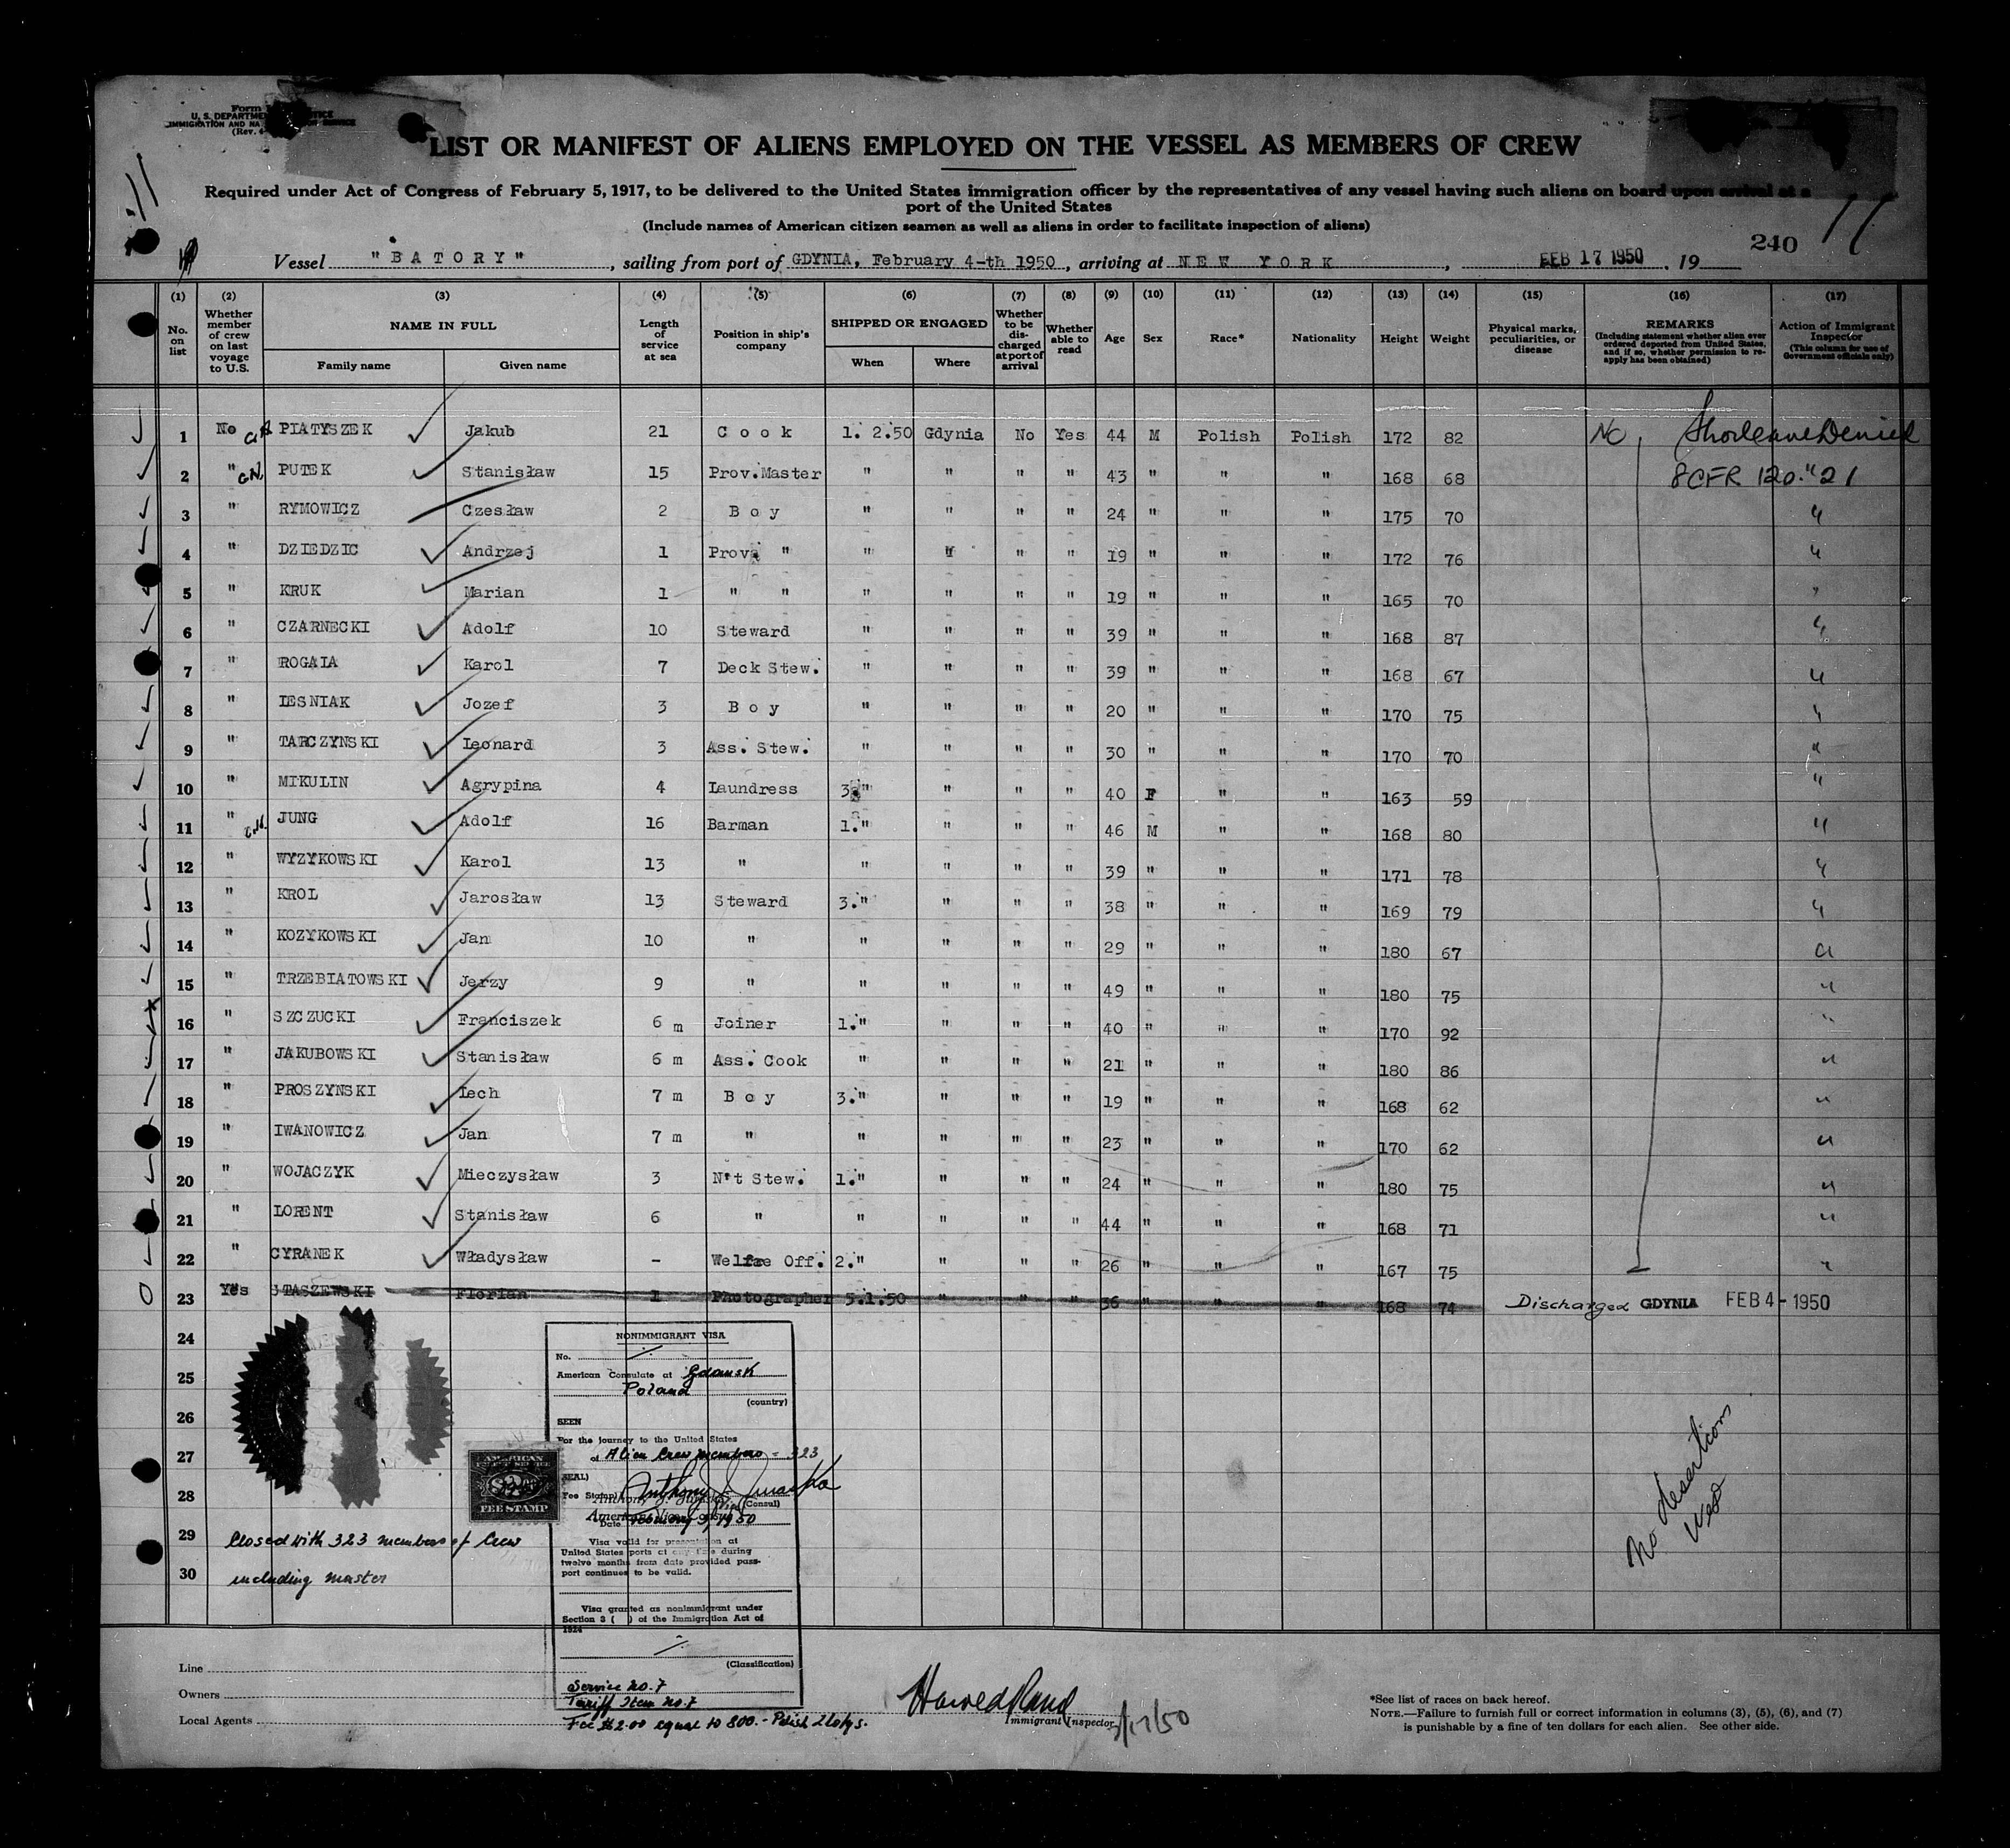 Form
U. S. DEPARTMENT JUSTICE
IMMIGRATION AND NA SERVICE
(Rev. 4
LIST OR MANIFEST OF ALIENS EMPLOYED ON THE VESSEL AS MEMBERS OF CREW
Required under Act of Congress of February 5, 1917, to be delivered to the United States immigration officer by the representatives of any vessel having such aliens on board upon arrival at a
port of the United States
(Include names of American citizen seamen as well as aliens in order to facilitate inspection of aliens)
240 11
Vessel "BATORY", sailing from port of GDYNIA, February 4-th 1950, arriving at NEW YORK, FEB 17 1950, 19
(1) (2) (3) (4) (5) (6) (7) (8) (9) (10) (11) (12) (13) (14) (15) (16) (17)
No. on list
Whether member of crew on last voyage to U.S.
NAME IN FULL
Family name Given name
Length of service at sea
Position in ship's company
SHIPPED OR ENGAGED
When Where
Whether to be discharged at port of arrival
Whether able to read
Age Sex Race* Nationality Height Weight
Physical marks, peculiarities, or disease
REMARKS
(Including statement whether alien ever ordered deported from United States, and if so, whether permission to reapply has been obtained)
Action of Immigrant Inspector
(This column for use of Government officials only)
1 No PIATYSZEK Jakub 21 Cook 1. 2.50 Gdynia No Yes 44 M Polish Polish 172 82 NC Shoreleave Denied
2 " PUTEK Stanisław 15 Prov.Master " " " " 43 " " " 168 68 8CFR 120."21
3 " RYMOWICZ Czesław 2 Boy " " " " 24 " " " 175 70 "
4 " DZIEDZIC Andrzej 1 Prov. " " " " " 19 " " " 172 76 "
5 " KRUK Marian 1 " " " " " " 19 " " " 165 70 "
6 " CZARNECKI Adolf 10 Steward " " " " 39 " " " 168 87 "
7 " ROGAIA Karol 7 Deck Stew. " " " " 39 " " " 168 67 "
8 " IESNIAK Jozef 3 Boy " " " " 20 " " " 170 75 "
9 " TARCZYNSKI Leonard 3 Ass. Stew. " " " " 30 " " " 170 70 "
10 " MIKULIN Agrypina 4 Laundress 3." " " " 40 F " " 163 59 "
11 " JUNG Adolf 16 Barman 1." " " " 46 M " " 168 80 "
12 " WYZYKOWSKI Karol 13 " " " " " 39 " " " 171 78 "
13 " KROL Jarosław 13 Steward 3." " " " 38 " " " 169 79 "
14 " KOZYKOWSKI Jan 10 " " " " " 29 " " " 180 67 "
15 " TRZEBIATOWSKI Jerzy 9 " " " " " 49 " " " 180 75 "
16 " SZCZUCKI Franciszek 6 m Joiner 1." " " " 40 " " " 170 92 "
17 " JAKUBOWSKI Stanisław 6 m Ass. Cook " " " " 21 " " " 180 86 "
18 " PROSZYNSKI Lech 7 m Boy 3." " " " 19 " " " 168 62 "
19 " IWANOWICZ Jan 7 m " " " " " 23 " " " 170 62 "
20 " WOJACZYK Mieczysław 3 N't Stew. 1." " " " 24 " " " 180 75 "
21 " LORENT Stanisław 6 " " " " " 44 " " " 168 71 "
22 " CYRANEK Władysław - Welfre Off. 2." " " " 26 " " " 167 75 "
23 Yes STASZEWSKI Florian 1 Photographer 5.1.50 " " " 36 " " " 168 74 Discharged GDYNIA FEB 4 - 1950
24
25
26
27
28
29
30
NONIMMIGRANT VISA
No.
American Consulate at Gdansk
Poland
(country)
SEEN
For the journey to the United States
of Alien Crew members = 323
(SEAL)
(Fee Stamp)
(Consul)
American Vice Consul
Date February 3, 1950
Visa valid for presentation at
United States ports at any time during
twelve months from date provided pass-
port continues to be valid.
Visa granted as nonimmigrant under
Section 3 ( ) of the Immigration Act of
1924
(Classification)
Service No. 7
Tariff Item No. 7
Fee $2.00 equal to 800.- Polish Zlotys.
AMERICAN
FEE STAMP
Closed with 323 members of Crew
including master
No desertions
Line
Owners
Local Agents
Immigrant Inspector
*See list of races on back hereof.
NOTE.—Failure to furnish full or correct information in columns (3), (5), (6), and (7)
is punishable by a fine of ten dollars for each alien. See other side.